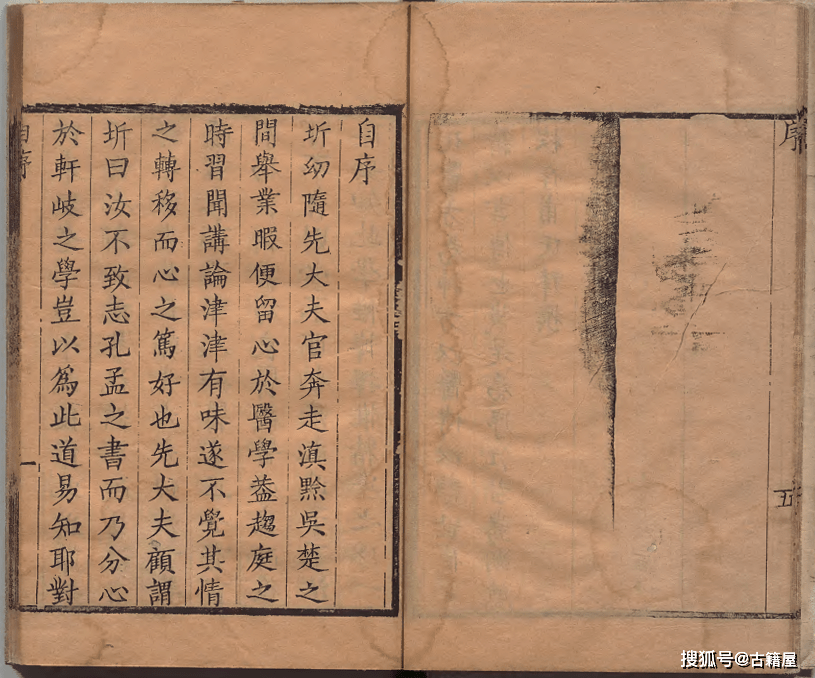 序
五
自序
圻幼隨先大夫官奔走滇黔吳楚之
間舉業暇便留心於醫學葢趨庭之
時習聞講論津津有味遂不覺其情
之轉移而心之篤好也先大夫顧謂
圻曰汝不致志孔孟之書而乃分心
於軒岐之學豈以為此道易知耶對
自序
一
搜狐号@古籍屋